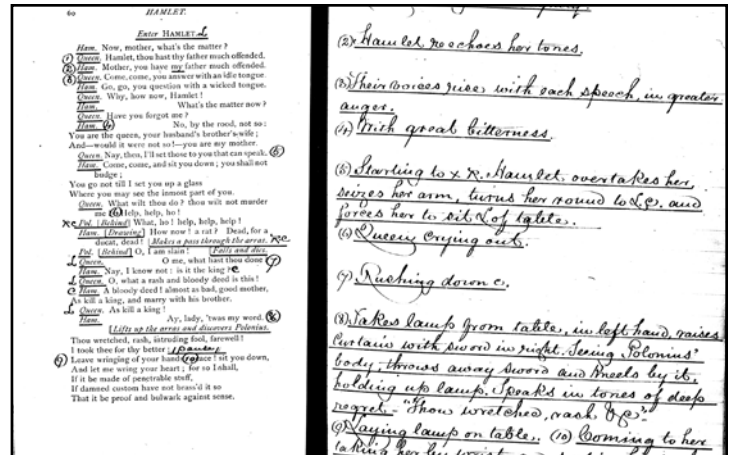 60 HAMLET.
Enter HAMLET L
Ham. Now, mother, what's the matter?
(1) Queen. Hamlet, thou hast thy father much offended.
(2) Ham. Mother, you have my father much offended.
(3) Queen. Come, come, you answer with an idle tongue.
Ham. Go, go, you question with a wicked tongue.
Queen. Why, how now, Hamlet!
Ham. What's the matter now?
Queen. Have you forgot me?
Ham. (4) No, by the rood, not so:
You are the queen, your husband's brother's wife;
And—would it were not so!—you are my mother.
Queen. Nay, then, I'll set those to you that can speak. (5)
Ham. Come, come, and sit you down; you shall not
budge;
You go not till I set you up a glass
Where you may see the inmost part of you.
Queen. What wilt thou do? thou wilt not murder
me (6) Help, help, ho!
RC Pol. [Behind] What, ho! help, help, help!
Ham. [Drawing] How now! a rat? Dead, for a
ducat, dead! [Makes a pass through the arras. RC
Pol. [Behind] O, I am slain! [Falls and dies.
L Queen. O me, what hast thou done (7)
C Ham. Nay, I know not: is it the king? C
L Queen. O, what a rash and bloody deed is this!
C Ham. A bloody deed! almost as bad, good mother,
As kill a king, and marry with his brother.
L Queen. As kill a king!
Ham. Ay, lady, 'twas my word. (8)
[Lifts up the arras and discovers Polonius.
Thou wretched, rash, intruding fool, farewell!
I took thee for thy better (pause)
(9) Leave wringing of your hand (10) peace! sit you down,
And let me wring your heart; for so I shall,
If it be made of penetrable stuff,
If damned custom have not brass'd it so
That it be proof and bulwark against sense.
(2) Hamlet reechoes her tones.
(3) Their voices rise with each speech, in greater
anger.
(4) With great bitterness.
(5) Starting to x R. Hamlet overtakes her,
seizes her arm, turns her round to L.C. and
forces her to sit L of table.
(6) Queen crying out.
(7) Rushing down C.
(8) Takes lamp from table, in left hand, raises
curtain with sword in right. Seeing Polonius'
body, throws away sword and kneels by it,
holding up lamp. Speaks in tones of deep
regret - "Thou wretched, rash &c"
(9) Laying lamp on table. (10) Coming to her
taking her by wrist